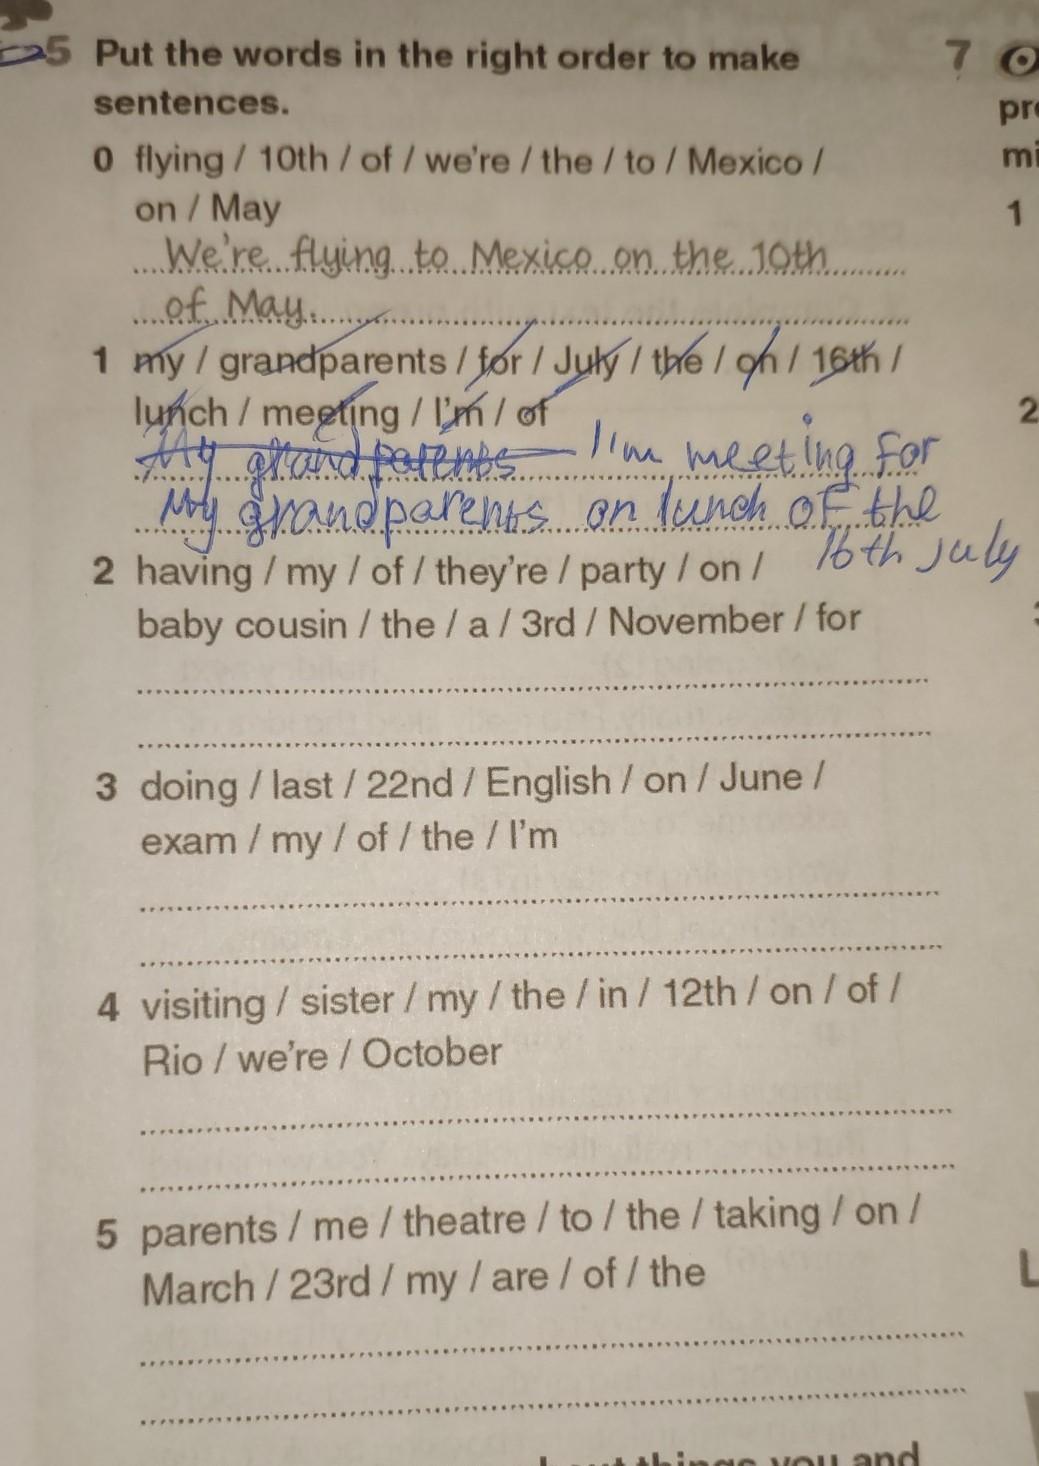 5 Put the words in the right order to make
sentences.
0 flying / 10th / of / we're / the / to / Mexico /
on / May
We're flying to Mexico on the 10th
of May.
1 my / grandparents / for / July / the / on / 16th /
lunch / meeting / I'm / of
My grandparents I'm meeting for
My grandparents on lunch of the
16th July
2 having / my / of / they're / party / on /
baby cousin / the / a / 3rd / November / for
3 doing / last / 22nd / English / on / June /
exam / my / of / the / I'm
4 visiting / sister / my / the / in / 12th / on / of /
Rio / we're / October
5 parents / me / theatre / to / the / taking / on /
March / 23rd / my / are / of / the
7
1
2